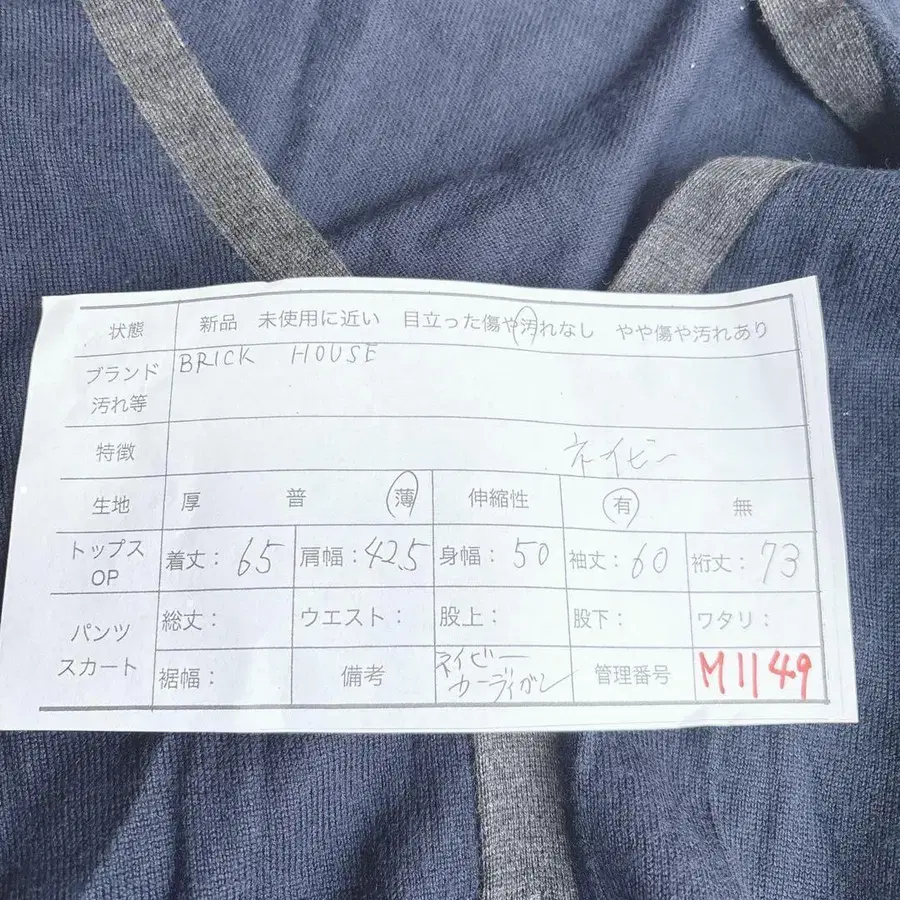 状態 新品 未使用に近い 目立った傷や汚れなし やや傷や汚れあり
ブランド BRICK HOUSE
汚れ等
特徴 ネイビー
生地 厚 普 薄 伸縮性 有 無
トップス OP 着丈: 65 肩幅: 42.5 身幅: 50 袖丈: 60 裄丈: 73
パンツ スカート 総丈: ウエスト: 股上: 股下: ワタリ:
裾幅: 備考 ネイビー カーディガン 管理番号 M1149